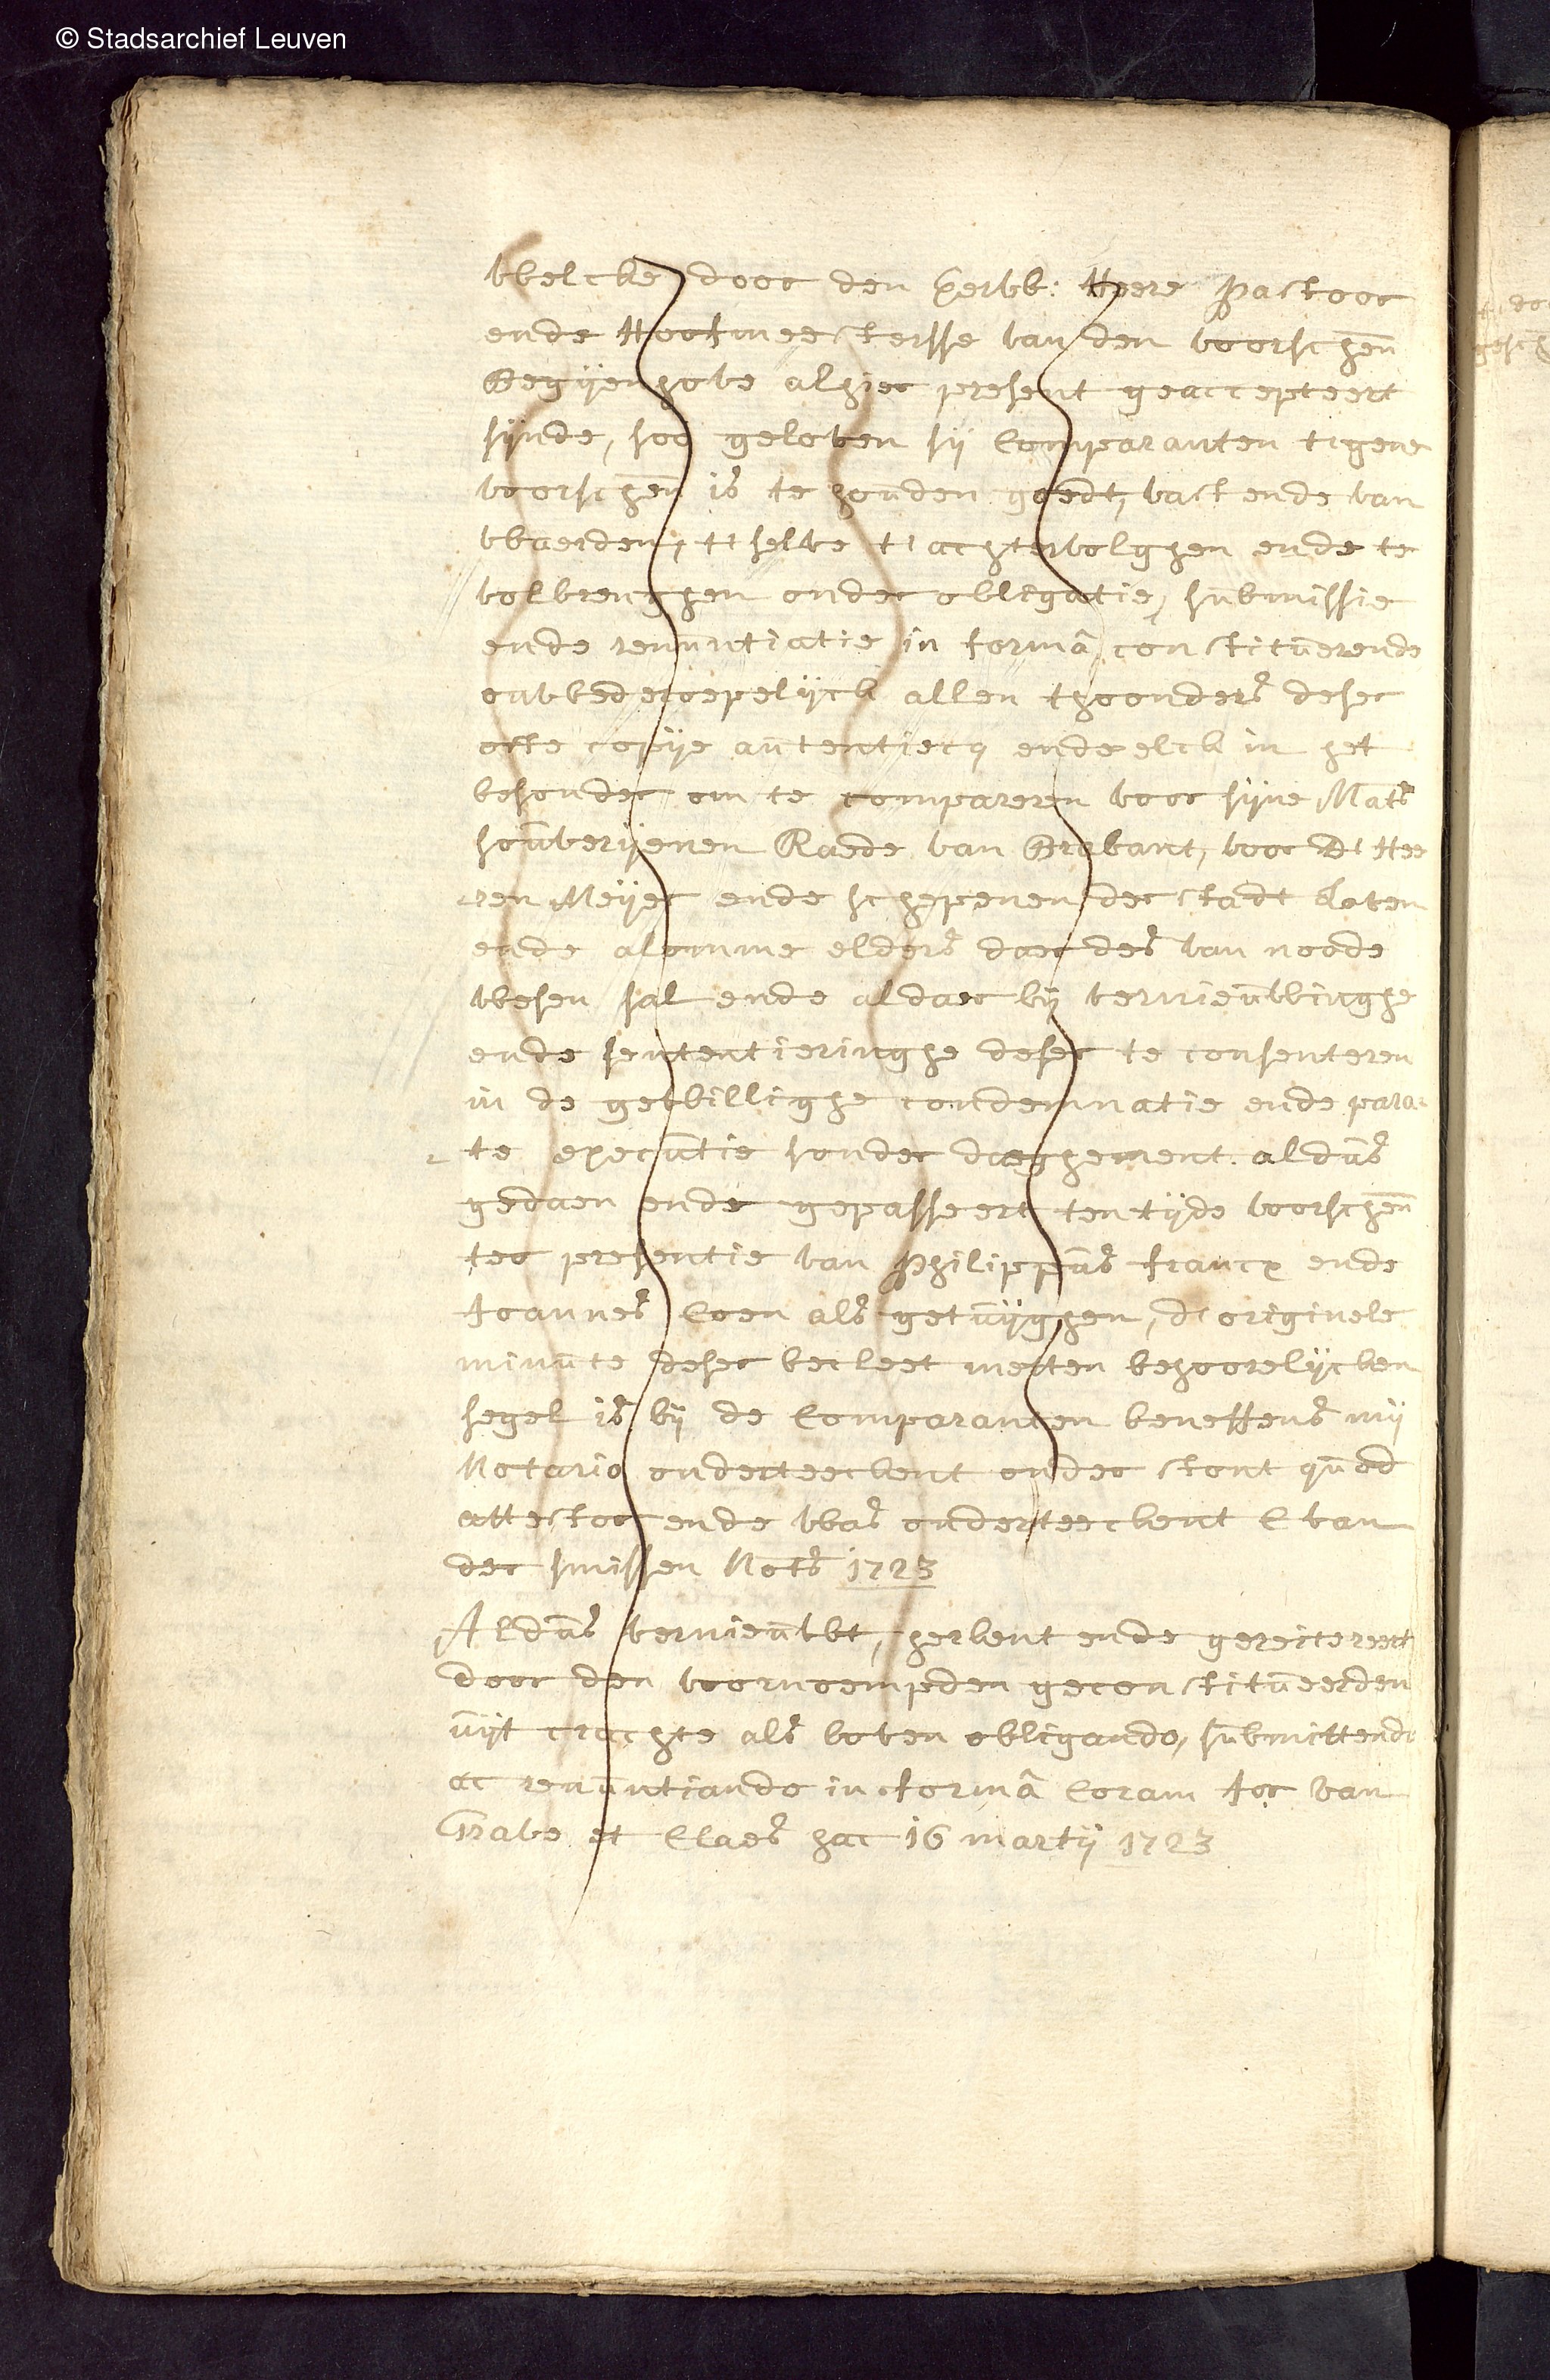 © Stadsarchief Leuven
welcke door den Eerw: Heere Pastoor
ende Hoofmeestersse van den voorschen
Begijenhove alhier present geaccepteert
sijnde, soo geloven sij Comparanten tgene
voorschen is te houden goedt, vast ende van
waerden, t'selve t'achtervolghen ende te
volbrenghen onder obligatie, submissie
ende renuntiatie in formâ, constituerende
onwederoepelijck allen thoonders deser
ofte copije autentiecq ende elck in het
besonder om te compareren voor sijne Mats
souverijenen Raede van Brabant, voor d' Hee
ren Meijer ende schepenen der stadt Loven
ende alomme elders daer des van noode
wesen sal ende aldaer bij vernieuwinghe
ende sententieringhe deser te consenteren
in de gewillighe condemnatie ende para
te executie sonder daeghement. aldus
gedaen ende gepasseert ten tijde voorschen
ter presentie van Philippus francx ende
Joannes Coen als getuijghen, d'originele
minute deser becleet metten behoorelijcken
segel is bij de Comparanten beneffens mij
Notario onderteeckent onder stont quod
attestor ende was onderteeckent C van
der smissen Nots 1723
Aldus vernieuwt, herkent ende gereitereert
door den voornoempden geconstitueerden
uijt crachte als boven obligando, submittendo
ac renuntiando in formâ Coram Jor van
Grave et Claes hac 16 martij 1723